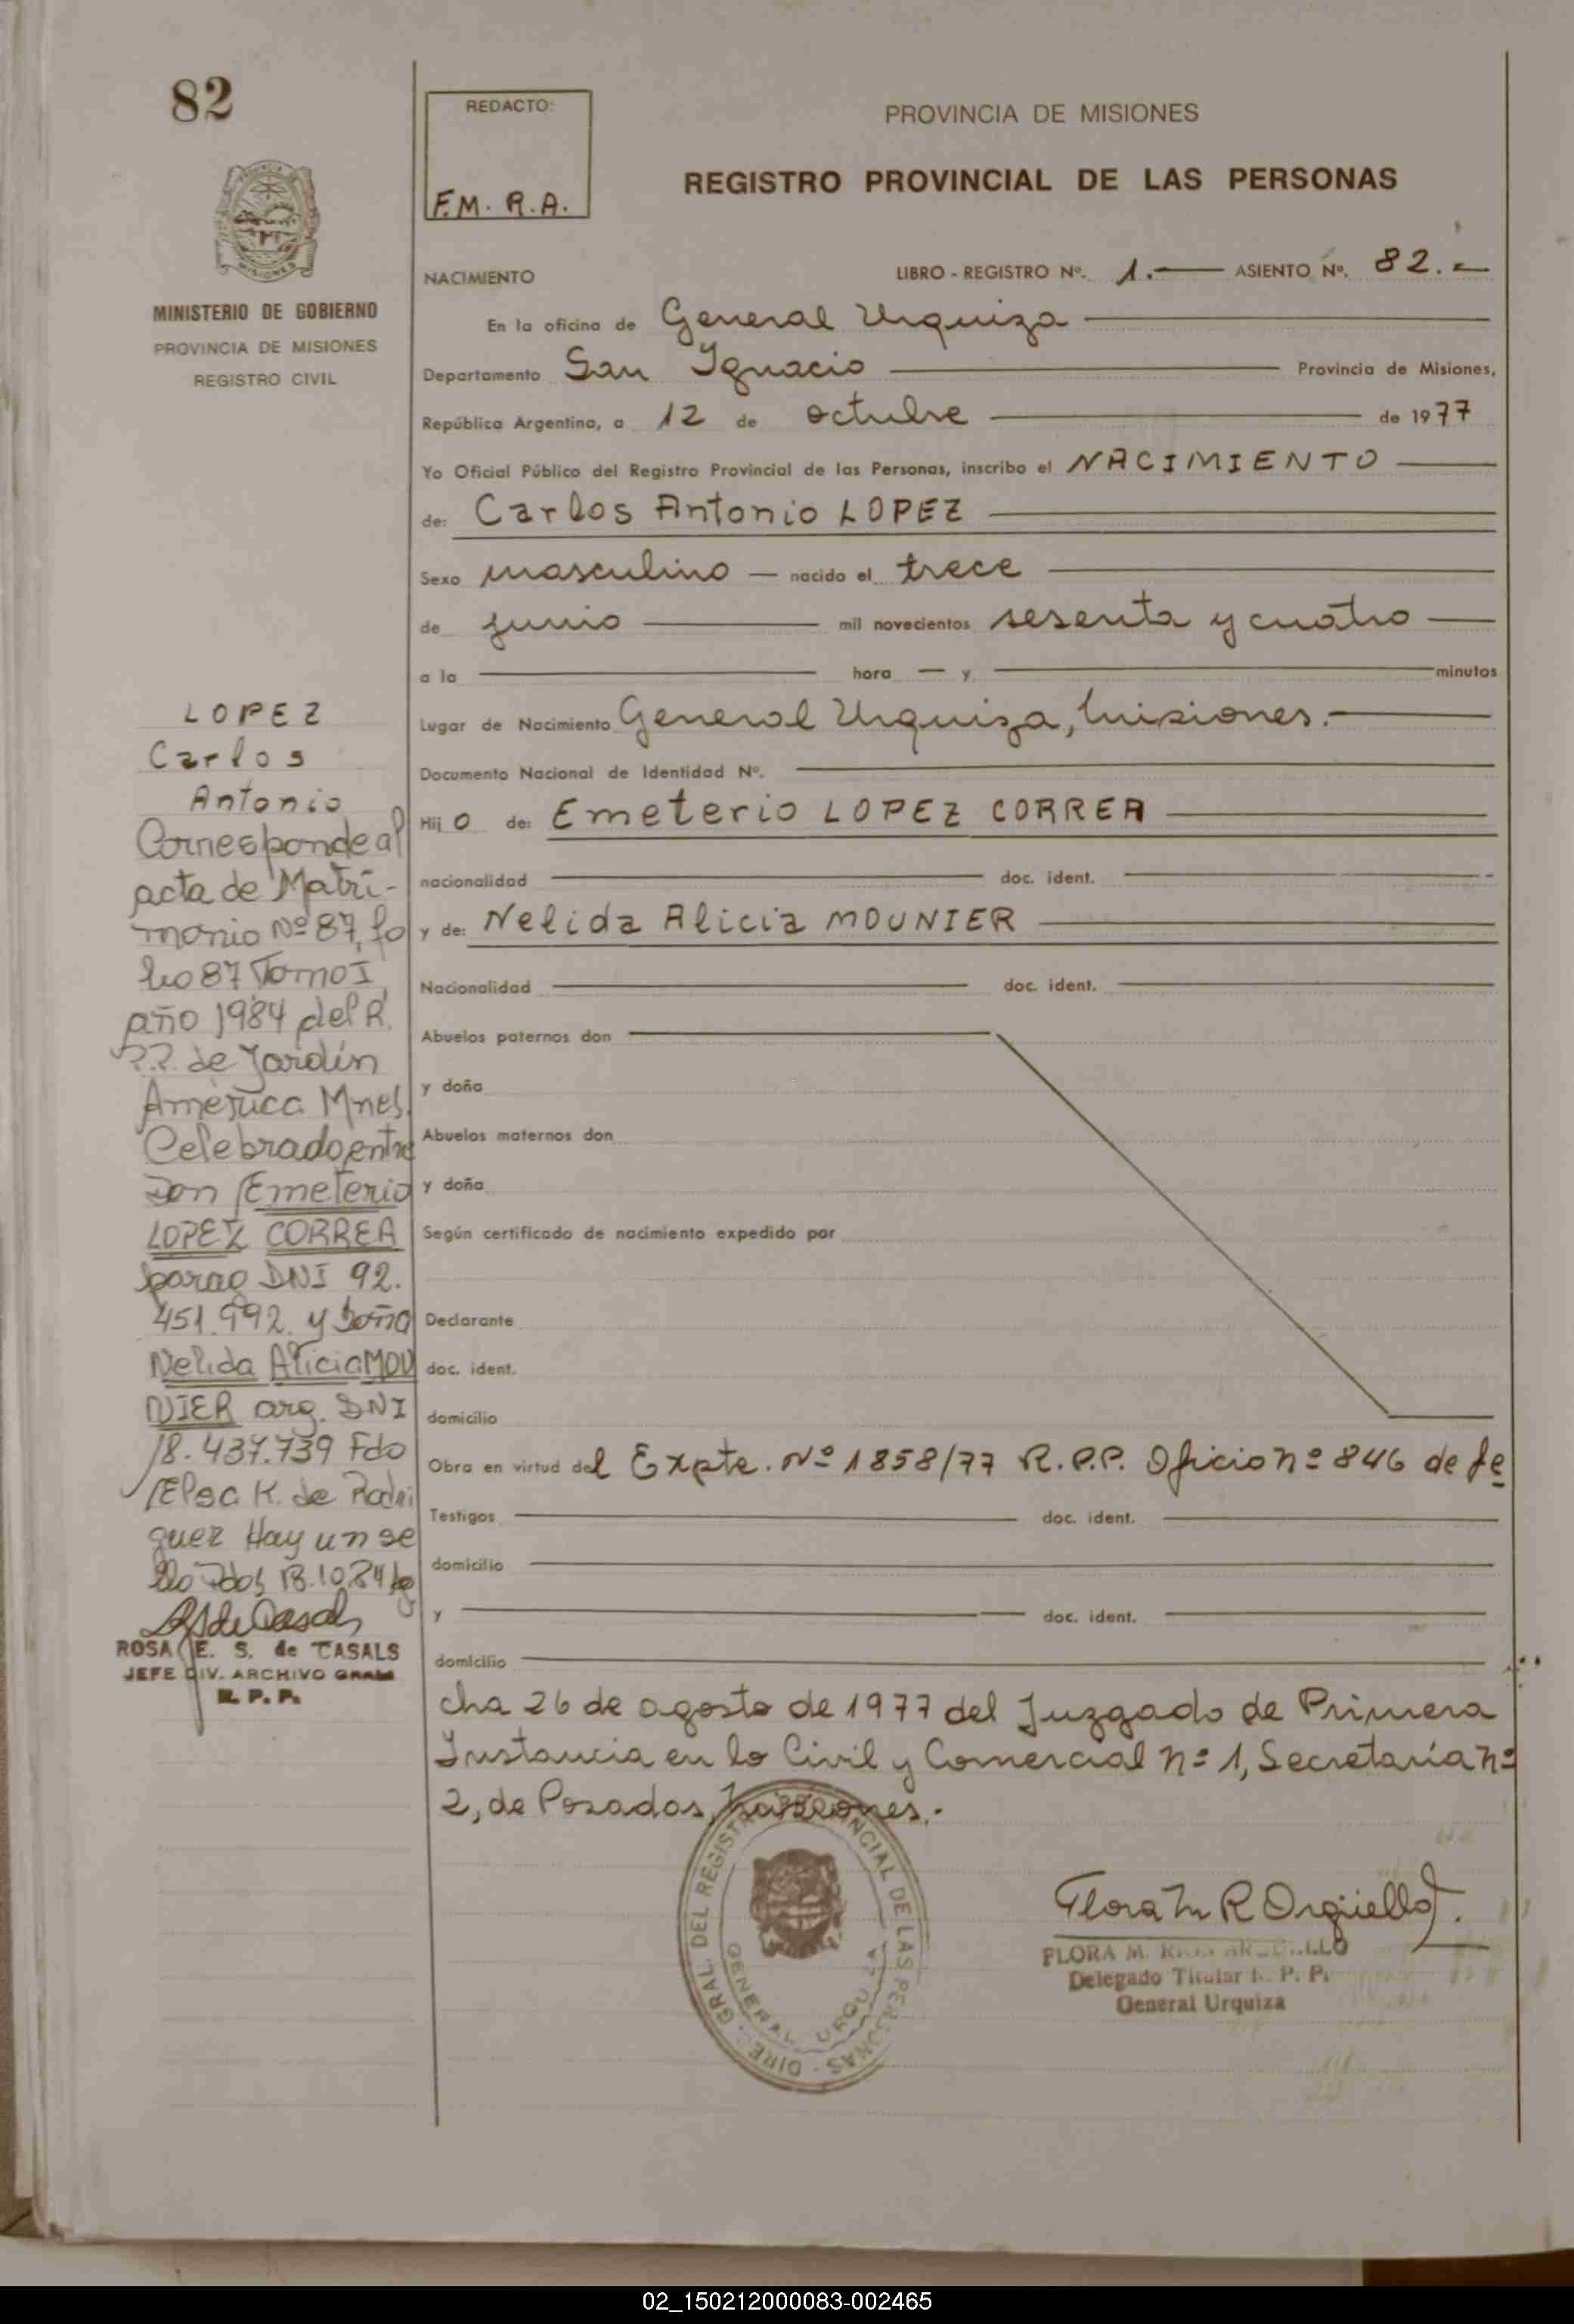 82
REDACTO:
F.M. R.A.
PROVINCIA DE MISIONES
REGISTRO PROVINCIAL DE LAS PERSONAS
MINISTERIO DE GOBIERNO
PROVINCIA DE MISIONES
REGISTRO CIVIL
NACIMIENTO
LIBRO - REGISTRO Nº. 1.— ASIENTO Nº. 82.-
En la oficina de General Urquiza
Departamento San Ignacio Provincia de Misiones,
República Argentina, a 12 de octubre de 1977
Yo Oficial Público del Registro Provincial de las Personas, inscribo el NACIMIENTO
de: Carlos Antonio LOPEZ
Sexo masculino — nacido el trece
de junio mil novecientos sesenta y cuatro
a la hora — y minutos
Lugar de Nacimiento General Urquiza, Misiones.-
Documento Nacional de Identidad Nº.
Hijo de: Emeterio LOPEZ CORREA
nacionalidad doc. ident.
y de: Nelida Alicia MOUNIER
Nacionalidad doc. ident.
Abuelos paternos don
y doña
Abuelos maternos don
y doña
Según certificado de nacimiento expedido por
Declarante
doc. ident.
domicilio
Obra en virtud del Expte. Nº 1858/77 R.P.P. Oficio nº 846 de fe
Testigos doc. ident.
domicilio
y doc. ident.
domicilio
cha 26 de agosto de 1977 del Juzgado de Primera
Instancia en lo Civil y Comercial nº 1, Secretaría nº
2, de Posadas, Misiones.-
LOPEZ
Carlos
Antonio
Corresponde al
acta de Matri-
monio Nº 87, fo
lio 87 Tomo I
año 1984 del R.
P.P. de Jardín
América Mnes.
Celebrado entre
Don Emeterio
LOPEZ CORREA
parag DNI 92.
451.992 y Doña
Nelida Alicia MOU
NIER arg. DNI
18.437.739 Fdo
Elsa K. de Rodri
guez Hay un se
llo Pdos
ROSA E. S. de CASALS
JEFE DIV. ARCHIVO GRAL
R. P. P.
DIRE. GRAL DEL REGISTRO PROVINCIAL DE LAS PERSONAS
GENERAL URQUIZA
Flora M R Orgüello
FLORA M. RIOS
Delegado Titular R. P. P.
General Urquiza
02_150212000083-002465